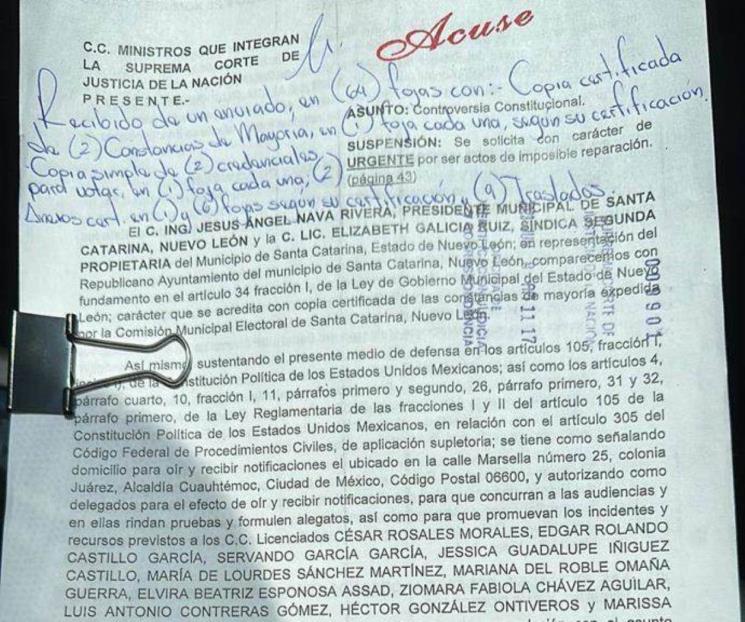 Acuse
C.C. MINISTROS QUE INTEGRAN
LA SUPREMA CORTE DE
JUSTICIA DE LA NACIÓN
P R E S E N T E.-
Recibido de un enviado, en (64) fojas con:- Copia certificada
de (2) Constancias de Mayoría, en (1) foja cada una, según su certificación.
Copia simple de (2) credenciales
para votar, en (1) foja cada una; (2)
Anexos cert. en (1) y (6) fojas según su certificación y (9) Traslados.
ASUNTO: Controversia Constitucional.
SUSPENSIÓN: Se solicita con carácter de
URGENTE por ser actos de imposible reparación.
(página 43)
El C. ING. JESÚS ÁNGEL NAVA RIVERA, PRESIDENTE MUNICIPAL DE SANTA
CATARINA, NUEVO LEÓN y la C. LIC. ELIZABETH GALICIA RUIZ, SÍNDICA SEGUNDA
PROPIETARIA del Municipio de Santa Catarina, Estado de Nuevo León; en representación del
Republicano Ayuntamiento del municipio de Santa Catarina, Nuevo León, comparecemos con
fundamento en el artículo 34 fracción I, de la Ley de Gobierno Municipal del Estado de Nuevo
León; carácter que se acredita con copia certificada de las constancias de mayoría expedida
por la Comisión Municipal Electoral de Santa Catarina, Nuevo León.
Así mismo, sustentando el presente medio de defensa en los artículos 105, fracción I,
de la Constitución Política de los Estados Unidos Mexicanos; así como los artículos 4,
párrafo cuarto, 10, fracción I, 11, párrafos primero y segundo, 26, párrafo primero, 31 y 32,
párrafo primero, de la Ley Reglamentaria de las fracciones I y II del artículo 105 de la
Constitución Política de los Estados Unidos Mexicanos, en relación con el artículo 305 del
Código Federal de Procedimientos Civiles, de aplicación supletoria; se tiene como señalando
domicilio para oír y recibir notificaciones el ubicado en la calle Marsella número 25, colonia
Juárez, Alcaldía Cuauhtémoc, Ciudad de México, Código Postal 06600, y autorizando como
delegados para el efecto de oír y recibir notificaciones, para que concurran a las audiencias y
en ellas rindan pruebas y formulen alegatos, así como para que promuevan los incidentes y
recursos previstos a los C.C. Licenciados CÉSAR ROSALES MORALES, EDGAR ROLANDO
CASTILLO GARCÍA, SERVANDO GARCÍA GARCÍA, JESSICA GUADALUPE IÑIGUEZ
CASTILLO, MARÍA DE LOURDES SÁNCHEZ MARTÍNEZ, MARIANA DEL ROBLE OMAÑA
GUERRA, ELVIRA BEATRIZ ESPONOSA ASSAD, ZIOMARA FABIOLA CHÁVEZ AGUILAR,
LUIS ANTONIO CONTRERAS GÓMEZ, HÉCTOR GONZÁLEZ ONTIVEROS y MARISSA